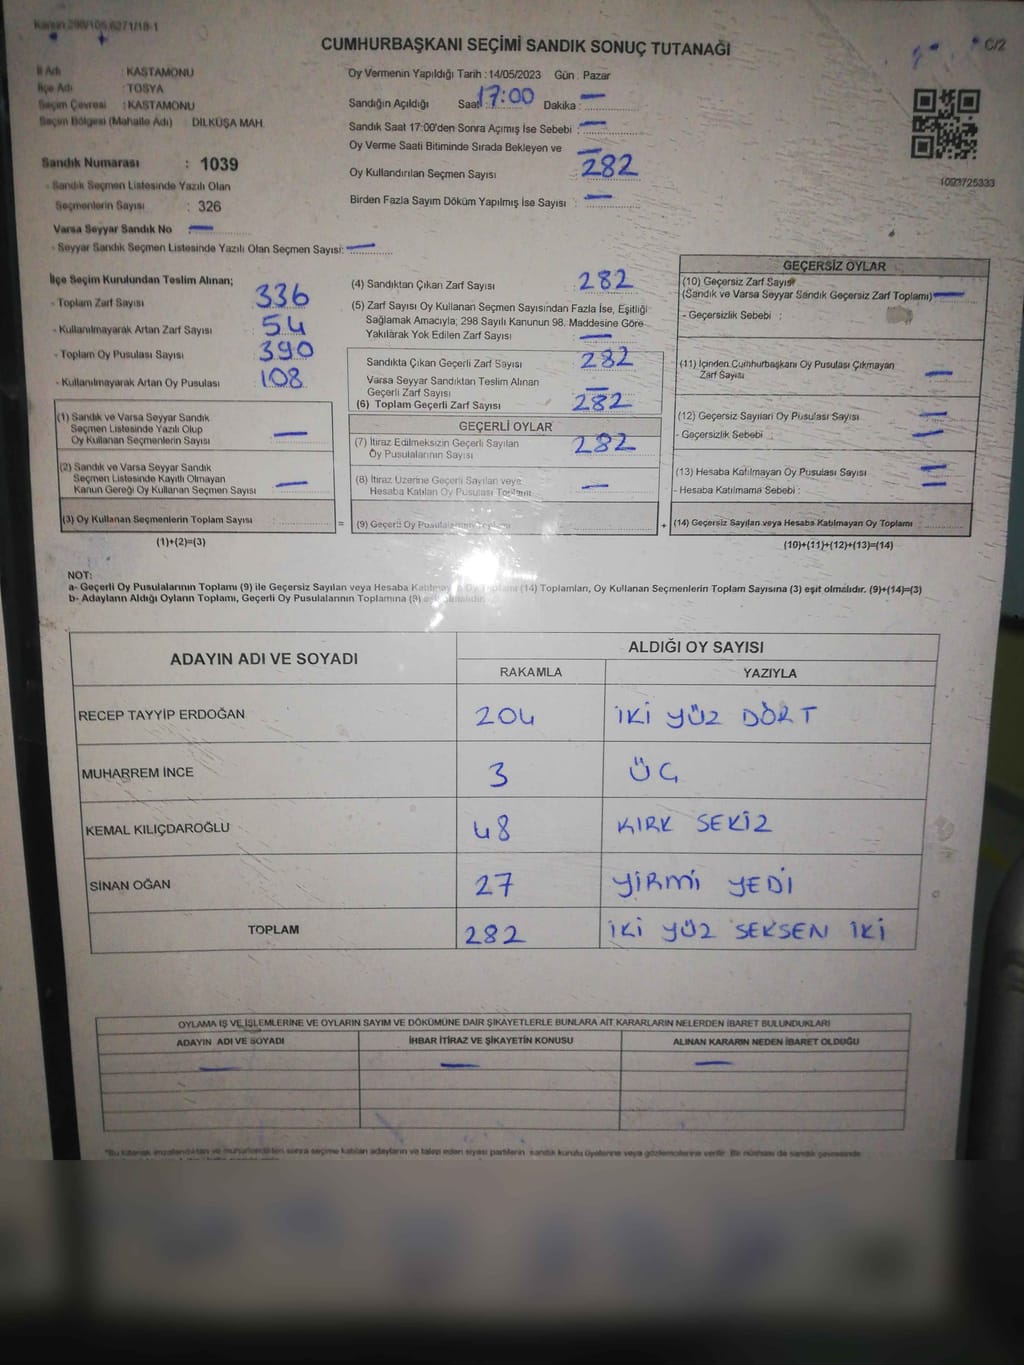 Kanun 298/105,6271/18-1
CUMHURBAŞKANI SEÇİMİ SANDIK SONUÇ TUTANAĞI
C/2
İl Adı KASTAMONU
İlçe Adı TOSYA
Seçim Çevresi : KASTAMONU
Seçim Bölgesi (Mahalle Adı) DİLKÜŞA MAH.
Sandık Numarası : 1039
- Sandık Seçmen Listesinde Yazılı Olan
Seçmenlerin Sayısı : 326
Varsa Seyyar Sandık No —
- Seyyar Sandık Seçmen Listesinde Yazılı Olan Seçmen Sayısı: —
Oy Vermenin Yapıldığı Tarih : 14/05/2023 Gün : Pazar
Sandığın Açıldığı Saat : 17:00 Dakika : —
Sandık Saat 17:00'den Sonra Açımış İse Sebebi : —
Oy Verme Saati Bitiminde Sırada Bekleyen ve —
Oy Kullandırılan Seçmen Sayısı : 282
Birden Fazla Sayım Döküm Yapılmış İse Sayısı : —
1093725333
İlçe Seçim Kurulundan Teslim Alınan;
- Toplam Zarf Sayısı 336
- Kullanılmayarak Artan Zarf Sayısı 54
- Toplam Oy Pusulası Sayısı 390
- Kullanılmayarak Artan Oy Pusulası 108
(1) Sandık ve Varsa Seyyar Sandık
Seçmen Listesinde Yazılı Olup
Oy Kullanan Seçmenlerin Sayısı —
(2) Sandık ve Varsa Seyyar Sandık
Seçmen Listesinde Kayıtlı Olmayan
Kanun Gereği Oy Kullanan Seçmen Sayısı —
(3) Oy Kullanan Seçmenlerin Toplam Sayısı
(1)+(2)=(3)
(4) Sandıktan Çıkan Zarf Sayısı 282
(5) Zarf Sayısı Oy Kullanan Seçmen Sayısından Fazla İse, Eşitliği
Sağlamak Amacıyla; 298 Sayılı Kanunun 98. Maddesine Göre
Yakılarak Yok Edilen Zarf Sayısı —
Sandıkta Çıkan Geçerli Zarf Sayısı 282
Varsa Seyyar Sandıktan Teslim Alınan
Geçerli Zarf Sayısı —
(6) Toplam Geçerli Zarf Sayısı 282
GEÇERLİ OYLAR
(7) İtiraz Edilmeksizin Geçerli Sayılan
Oy Pusulalarının Sayısı 282
(8) İtiraz Üzerine Geçerli Sayılan veya
Hesaba Katılan Oy Pusulası Toplamı —
= (9) Geçerli Oy Pusulalarının Toplamı
GEÇERSİZ OYLAR
(10) Geçersiz Zarf Sayısı
(Sandık ve Varsa Seyyar Sandık Geçersiz Zarf Toplamı) —
- Geçersizlik Sebebi :
(11) İçinden Cumhurbaşkanı Oy Pusulası Çıkmayan
Zarf Sayısı —
(12) Geçersiz Sayılan Oy Pusulası Sayısı —
- Geçersizlik Sebebi : —
(13) Hesaba Katılmayan Oy Pusulası Sayısı —
- Hesaba Katılmama Sebebi : —
+ (14) Geçersiz Sayılan veya Hesaba Katılmayan Oy Toplamı
(10)+(11)+(12)+(13)=(14)
NOT:
a- Geçerli Oy Pusulalarının Toplamı (9) ile Geçersiz Sayılan veya Hesaba Katılmayan Oy Toplamı (14) Toplamları, Oy Kullanan Seçmenlerin Toplam Sayısına (3) eşit olmalıdır. (9)+(14)=(3)
b- Adayların Aldığı Oyların Toplamı, Geçerli Oy Pusulalarının Toplamına (9) eşit olmalıdır.
ADAYIN ADI VE SOYADI ALDIĞI OY SAYISI
RAKAMLA YAZIYLA
RECEP TAYYİP ERDOĞAN 204 İKİ YÜZ DÖRT
MUHARREM İNCE 3 ÜÇ
KEMAL KILIÇDAROĞLU 48 KIRK SEKİZ
SİNAN OĞAN 27 YİRMİ YEDİ
TOPLAM 282 İKİ YÜZ SEKSEN İKİ
OYLAMA İŞ VE İŞLEMLERİNE VE OYLARIN SAYIM VE DÖKÜMÜNE DAİR ŞİKAYETLERLE BUNLARA AİT KARARLARIN NELERDEN İBARET BULUNDUKLARI
ADAYIN ADI VE SOYADI İHBAR İTİRAZ VE ŞİKAYETİN KONUSU ALINAN KARARIN NEDEN İBARET OLDUĞU
— — —
*Bu tutanak imzalandıktan ve mühürlendikten sonra seçime katılan adayların ve talep eden siyasi partilerin sandık kurulu üyelerine veya gözlemcilerine verilir. Bir nüshası da sandık çevresinde